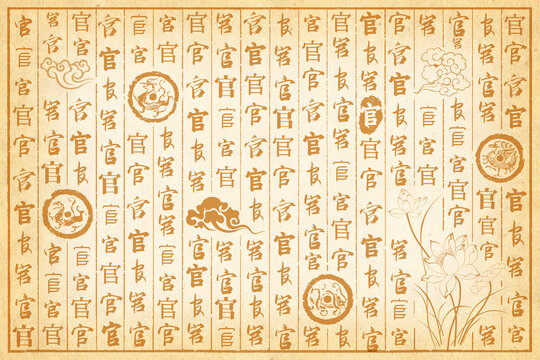 官官官官官官官官官官官官
官官官官官官官官官官
官官官官官官官官
官官官官官官官官
官官官官官官官官官官官官
官官官官官官官官官官官官
官官官官官官官官官官官官
官官官官官官官官官官
官官官官官官官官官官官官
官官官官官官官官官官官官
官官官官官官官官官官官
官官官官官官官官官官官
官官官官官官官官官官官官
官官官官官官官官官官
官官官官官官官官官官官官
官官官官官官官官官官官
官官官官官官官官官
官官官官官官官官官官官官